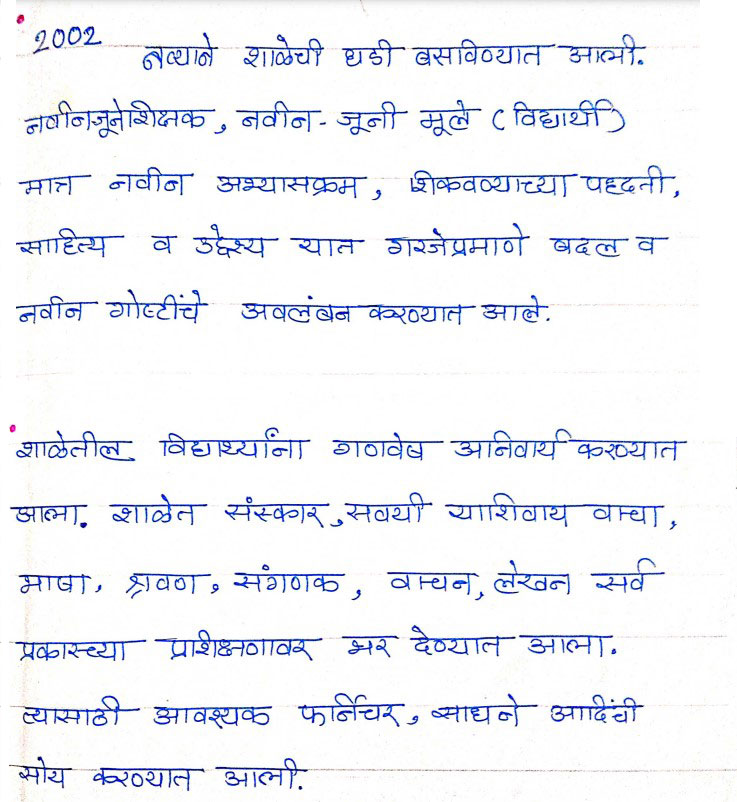 2002 नव्याने शाळेची घडी बसविण्यात आली.
नवीनजूनेशिक्षक, नवीन - जूनी मूले (विद्यार्थी)
मात्र नवीन अभ्यासक्रम, शिकवण्याच्या पद्दती,
साहित्य व उद्देश्य यात गरजेप्रमाणे बदल व
नवीन गोष्टींचे अवलंबन करण्यात आले.
शाळेतील विद्यार्थ्यांना गणवेष अनिवार्य करण्यात
आला. शाळेत संस्कार, सवयी याशिवाय वाचा,
भाषा, श्रवण, संगणक, वाचन, लेखन सर्व
प्रकारच्या प्रशिक्षणावर भर देण्यात आला.
त्यासाठी आवश्यक फर्निचर, साधने आदिंची
सोय करण्यात आली.